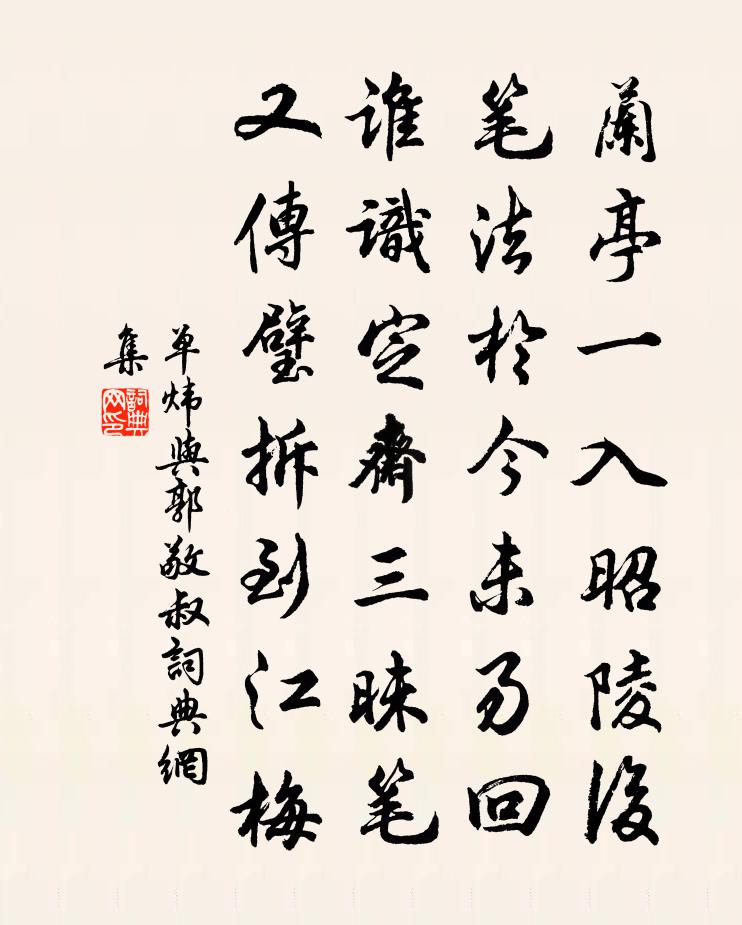 蘭亭一入昭陵後
笔法於今未易回
谁識定齋三昧笔
又傳璧拆到江梅
单炜與郭敬叔詞典網
集
詞典网印